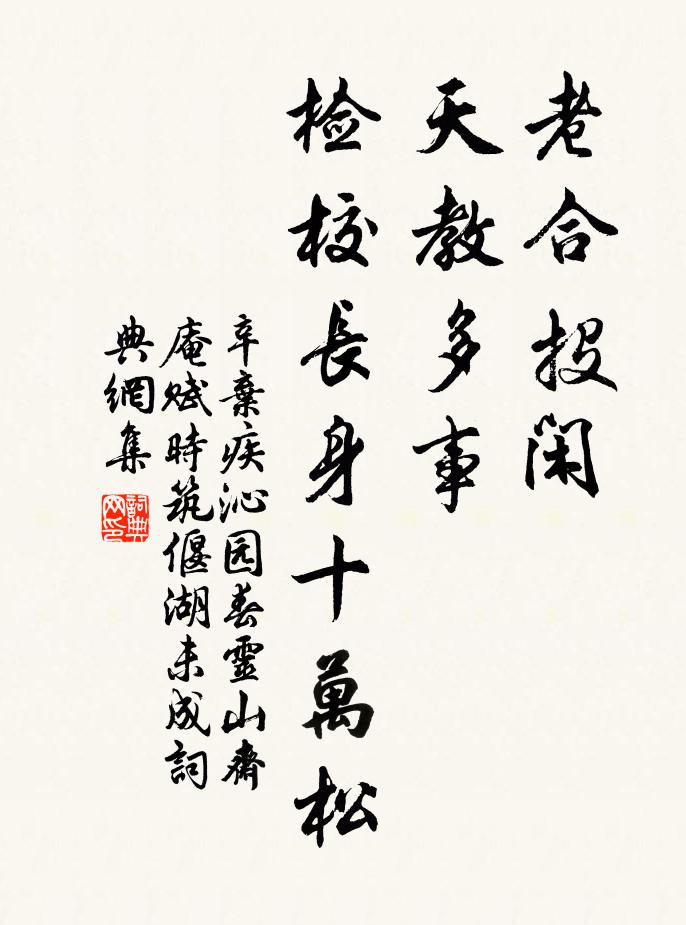 老合投閑
天教多事
检校長身十萬松
辛棄疾沁园春靈山齊
庵赋時筑偃湖未成詞
典網集
詞典网印